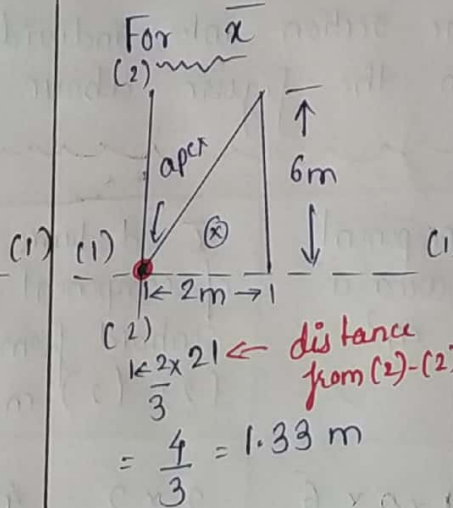 For x̄
(2)
apex
6m
(1) (1) ⓧ (1
|← 2m →|
(2)
|← 2/3 × 2 | ← distance
from (2)-(2)
= 4/3 = 1.33 m